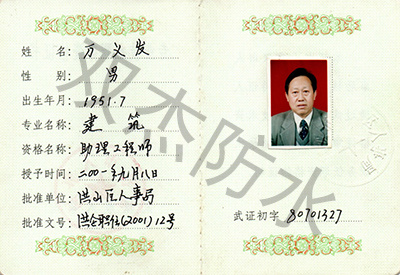 姓名: 万义发
性别: 男
出生年月: 1951.7
专业名称: 建筑
资格名称: 助理工程师
授予时间: 二00一年九月八日
批准单位: 洪山区人事局
批准文号: (2001)12号
武证初字 80701327
双杰防水